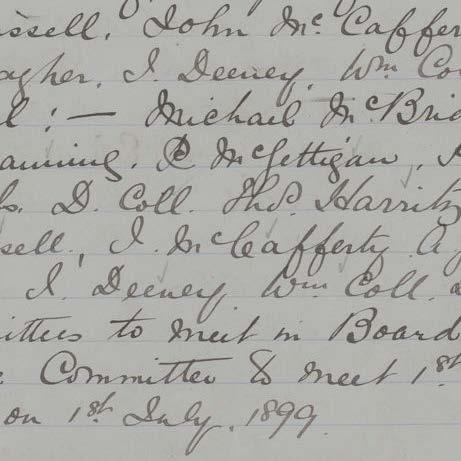 ussell, John McCaffer
agher. J. Deeney, Wm Co
l :— Michael McBrid
anning. P McGettigan,
s. D. Coll. Thos. Harrity
sell, J. McCafferty A
J. Deeney Wm Coll. a
ittees to meet in Board
e Committee to meet 1st
on 1st July, 1899.